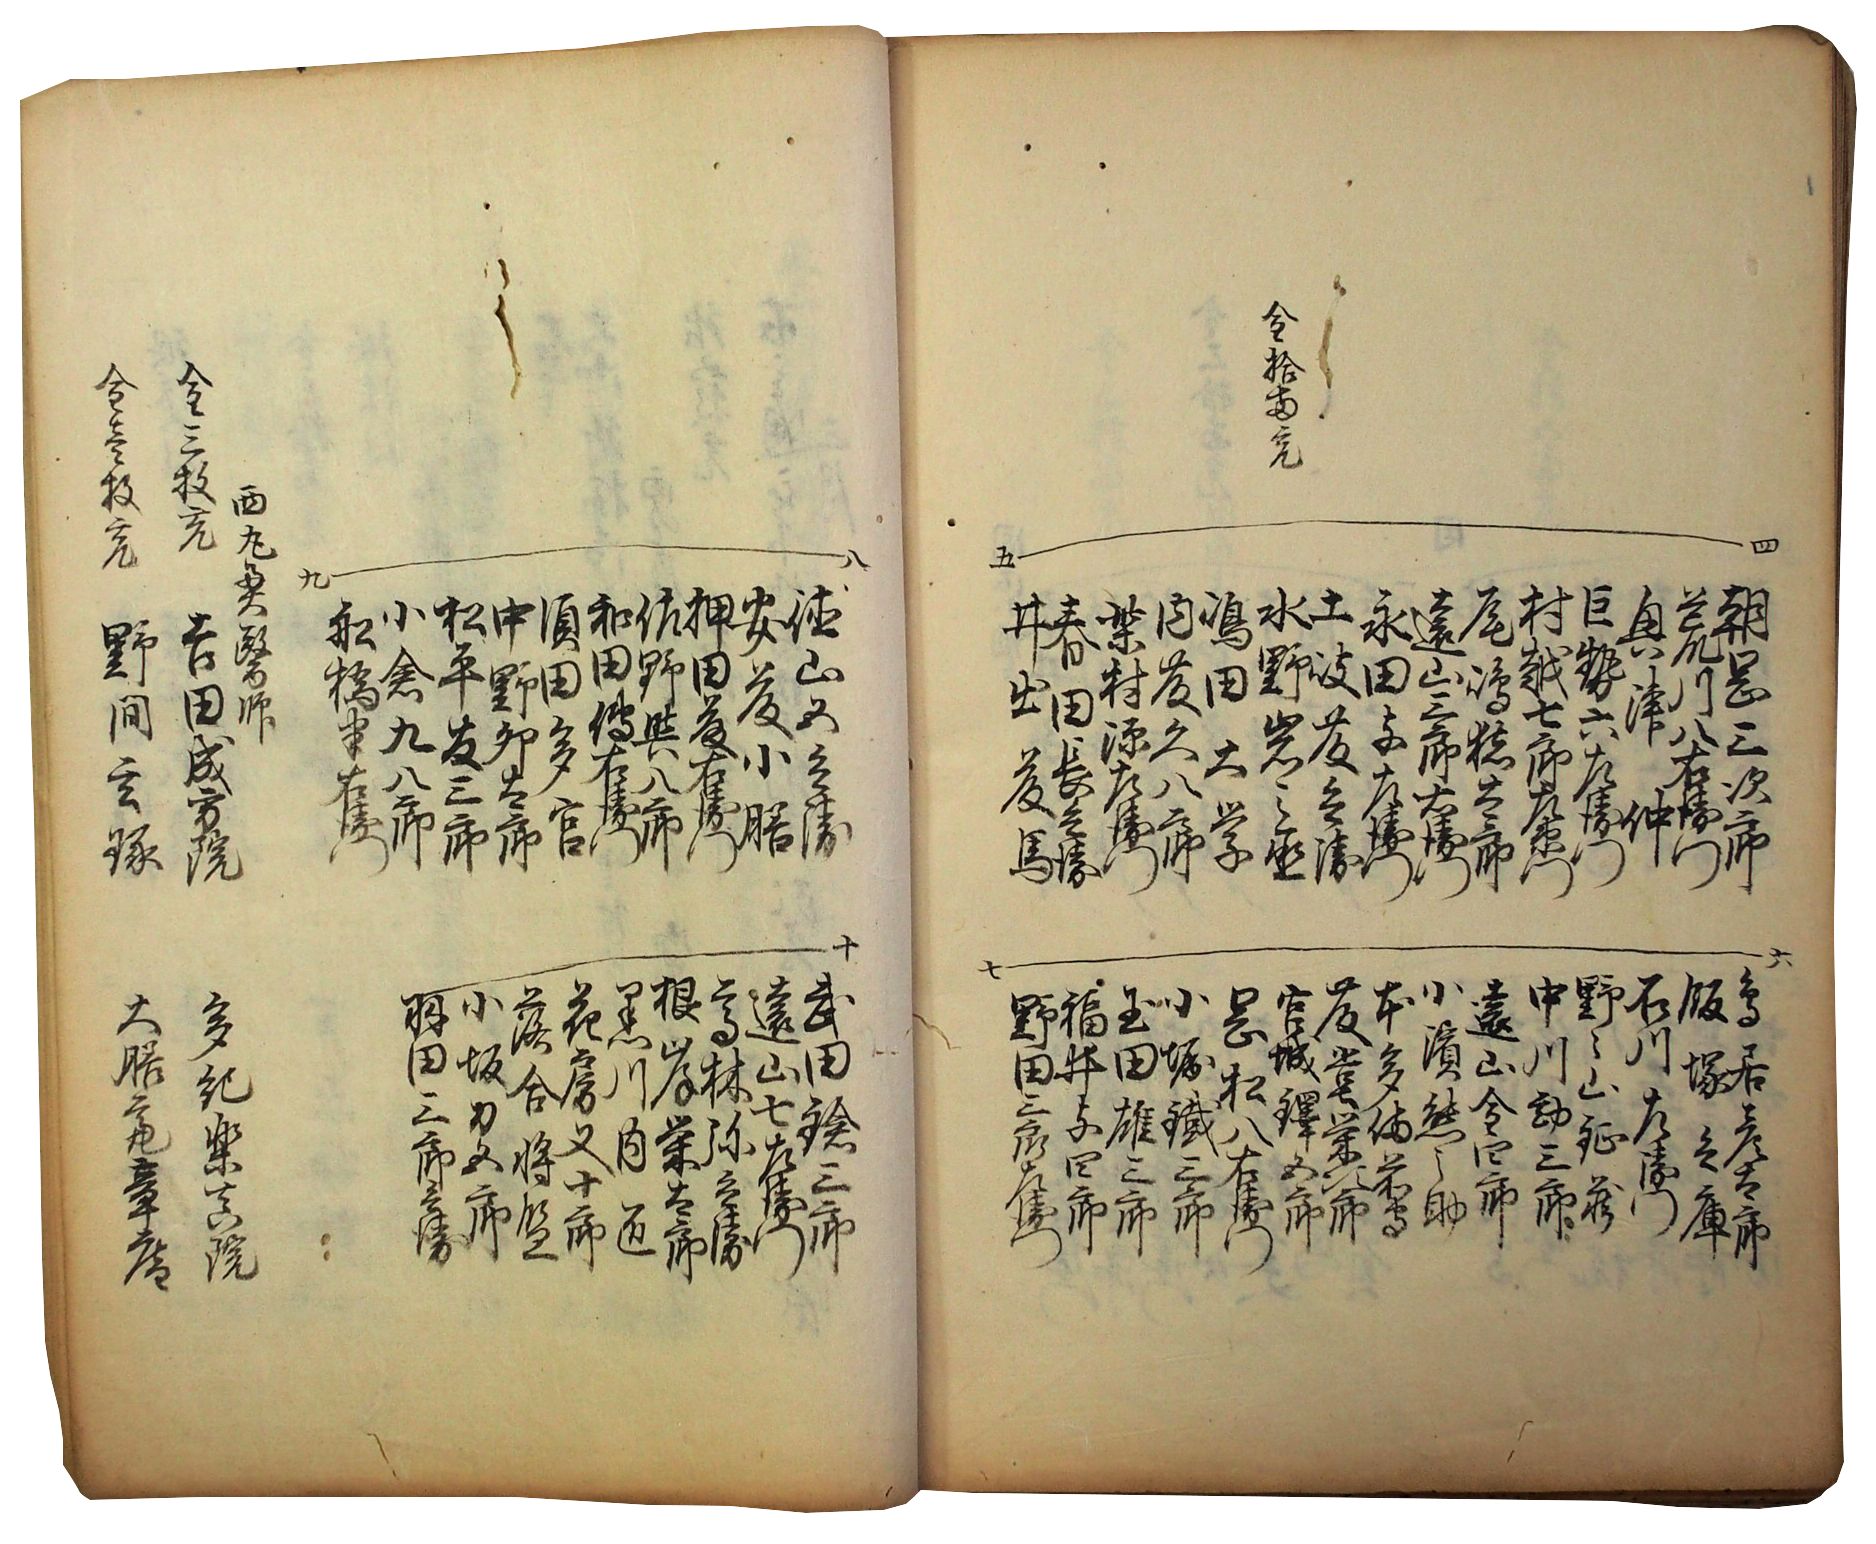 金拾両充
四
五
朝岡三次郎
荒川八右衛門
奥津仲
巨勢六左衛門
村越七郎左衛門
尾嶋穂太郎
遠山三郎右衛門
永田与左衛門
土岐藤兵衛
水野岩之丞
嶋田大学
内藤久八郎
柴村源左衛門
春田長兵衛
井出藤馬
六
七
鳥居彦太郎
飯塚兵庫
石川左衛門
野々山鉦蔵
中川勘三郎
遠山金四郎
小濱熊之助
本多備前守
藤堂栄次郎
宮城鐸五郎
岡松八右衛門
小堀鐵三郎
玉田雄三郎
福井与四郎
野田三郎左衛門
八
九
徳山五兵衛
安藤小膳
押田藤右衛門
佐野與八郎
和田傳右衛門
須田多宮
中野卯太郎
松平友三郎
小倉九八郎
船橋半右衛門
十
武田鐌三郎
遠山七左衛門
高林弥兵衛
根岸栄太郎
黒川内匠
花房又十郎
落合将監
小坂力五郎
羽田三郎兵衛
西丸奥醫師
金三枚充
吉田成方院
多紀楽真院
金壱枚充
野間玄琢
大膳亮章庵